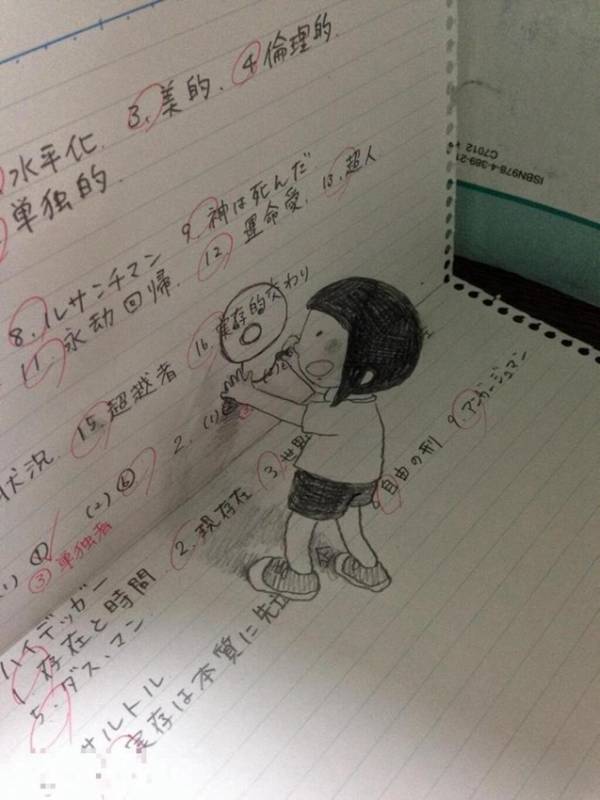 水平化. 3. 美的. 4 倫理的.
単独的.
8. ルサンチマン 9. 神は死んだ
11. 永动回帰. 12 運命受. 13. 超人
状況. 15. 超越者 16. 実存的交わり
(1) ① (2) ⑥ 2. (1)
③ 単独者
ハイデッガー
1. 存在と時間 2. 現存在 3. 世界
5. ダス・マン
サルトル
実存は本質に先立 8 自由の刑 9. アンガージュマン
ISBN978-4-389-21
C7012